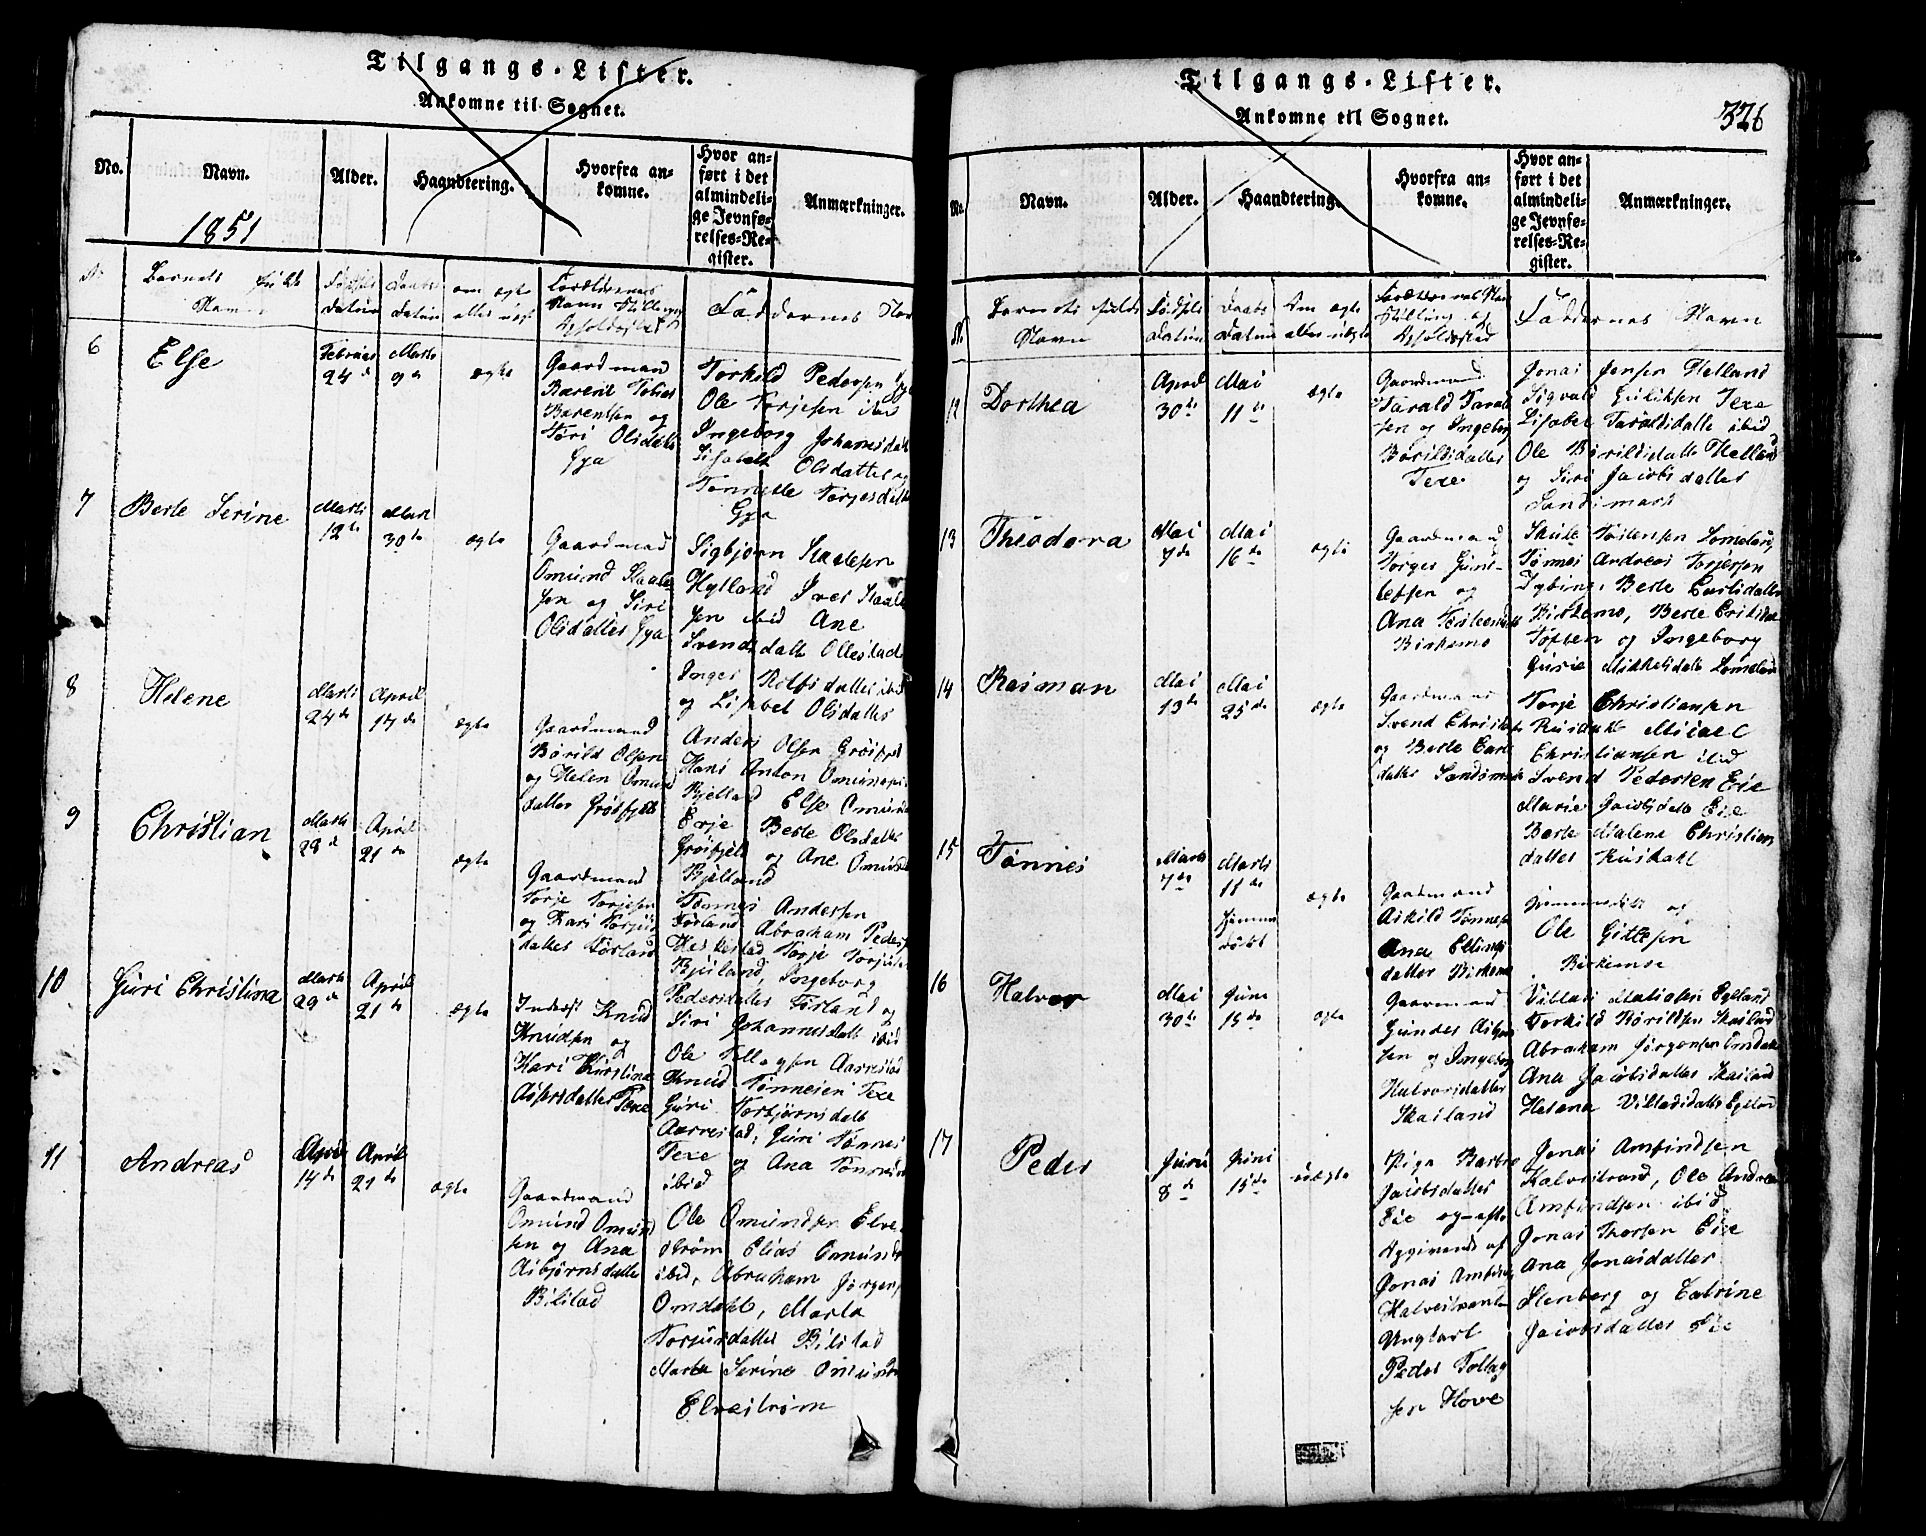 Tilgangs-Lister.
Ankomne til Sognet.
No.
Navn.
Alder.
Haandtering.
Hvorfra an-
komne.
Hvor an-
ført i det
almindeli-
ge Jevnfø-
relses-Re-
gister.
Anmærkninger.
1851
Barnets fulde
Navn
Fødsels
datum
Daabs
datum
om ægte
eller uægte
Forældrenes
Navn Stilling
Opholdssted
Faddernes Navn
6
Else
Februar
24 d
Marts
9 d
ægte
Gaardmand
Barent Tobias
Barentsen og
Tøri Olsdatter
Gya
Torkild Pedersen Gya
Ole Torjesen ibid
Ingeborg Johansdatt
Lisabeth Olsdatter og
Tonnette Torjesdatt
Gya
7
Berte Serine
Marts
12 te
Marts
30 te
ægte
Gaardmand
Omund Skaale
sen og Siri
Olsdatter Gya
Sigbjørn Skaalesen
Hylland Iver Skaale
sen ibid Ane
Svendsdatt Ollestad
Inger Rolfsdatter ibid
og Lisabet Olsdatter
8
Helene
Marts
24 de
April
17 de
ægte
Gaardmand
Børild Olsen
og Helen Omund
datter Grøsfjeld
Anders Olsen Grøsfjeld
Hans Anton Omundsen
Bjelland Else Omunds
Eeje Berte Olsdatter
Grøsfjeld og Ane Omunds
Bjelland
9
Christian
Marts
28 d
April
21 de
ægte
Gaardmand
Torje Torjesen
og Kari Torjus
datter Førland
Tønnes Andersen
Førland Abraham Peders
Heskestad Torje Torjusen
Bjuland, Ingeborg
Pedersdatter Førland og
Siri Johannesdatt ibid
10
Guri Christina
Marts
29 d
April
21 de
ægte
Inderst Knud
Knudsen og
Kari Kirstine
Aspersdatter Texe
Ole Tollagsen Aarrestad
Knud Tønnesen Texe
Guri Torbjørnsdatt
Aarrestad, Guri Tønnes
Texe og Ana Tønnes
ibid
11
Andreas
April
14 de
April
21 de
ægte
Gaardmand
Omund Omund
sen og Ana
Asbjørnsdatte
Bilstad
Ole Omundsen Elve
strøm Elias Omunds
ibid, Abraham Jørgen
Omdahl, Marta
Torjusdatter Bilstad
Marta Serine Omunds
Elvestrøm
Tilgangs-Lister.
Ankomne til Sognet.
326
No.
Navn.
Alder.
Haandtering.
Hvorfra an-
komne.
Hvor an-
ført i det
almindeli-
ge Jevnfø-
relses-Re-
gister.
Anmærkninger.
Barnets fulde
Navn
Fødsels
Datum
Daabs
Datum
Om ægte
eller uægte
Forældrenes Navn
Stilling og
Opholdssted
Faddernes Navn
12
Dorthea
April
30 te
Mai
11 te
ægte
Gaardmand
Tarald Taral
sen og Ingeborg
Børildsdatter
Texe
Jonas Jensen Helland
Sigvald Eriksen Texe
Lisabet Taraldsdatte ibid
Ole Børildsdatte Helland
og Siri Jacobsdatter
Sandsmark
13
Theodora
Mai
7 de
Mai
16 de
ægte
Gaardmand
Torger Gunt
lefsen og
Ana
Birkemo
Skule Torlensen Lomeland
Tønnes Andreas Torjersen
Berte Carlsdatter
Birkemo, Berte Eriksdat
Tøften og Ingeborg
Gurie Mikkelsdatt Lomeland
14
Rasman
Mai
13 te
Mai
25 de
ægte
Gaardmand
Svend Christen
og Berte Carls
datter Sandsmark
Torje Christiansen
Rusdahl Micael
Christiansen ibid
Svend Pedersen Eie
Marie Jacobsdatt Eie
Berte Malene Christian
datter Rusdahl
15
Tønnes
Marts
7 de
Marts
11 de
hjemme
døbt
ægte
Gaardmand
Askild Tønnesen
Ana Ellings
datter Birkemo
Ole Gittesen
Birkemoe
16
Halvor
Mai
30 te
Juni
15 de
ægte
Gaardmand
Gunder Asbjørn
sen og Ingeborg
Halvorsdatter
Skailand
Villads Matiasen Egeland
Torkild Børildsen Skailand
Abraham Jørgensen Omdahl
Ana Jacobsdatter Skailand
Helena Villadsdatt Egeland
17
Peder
Juni
8 de
Juni
15 de
uægte
Pige Barbro
Jacobsdatter
Eie og efter
Opgivende af
Jonas Amfinds
Kalvestrand
Ungkarl
Peder Tollag
sen Hove
Jonas Amfindsen
Kalvestrand, Ole Andreas
Amfindsen ibid
Jonas Thorsen Eie
Ana Jonasdatter
Stenberg og Catrine
Jacobsdatter Eie